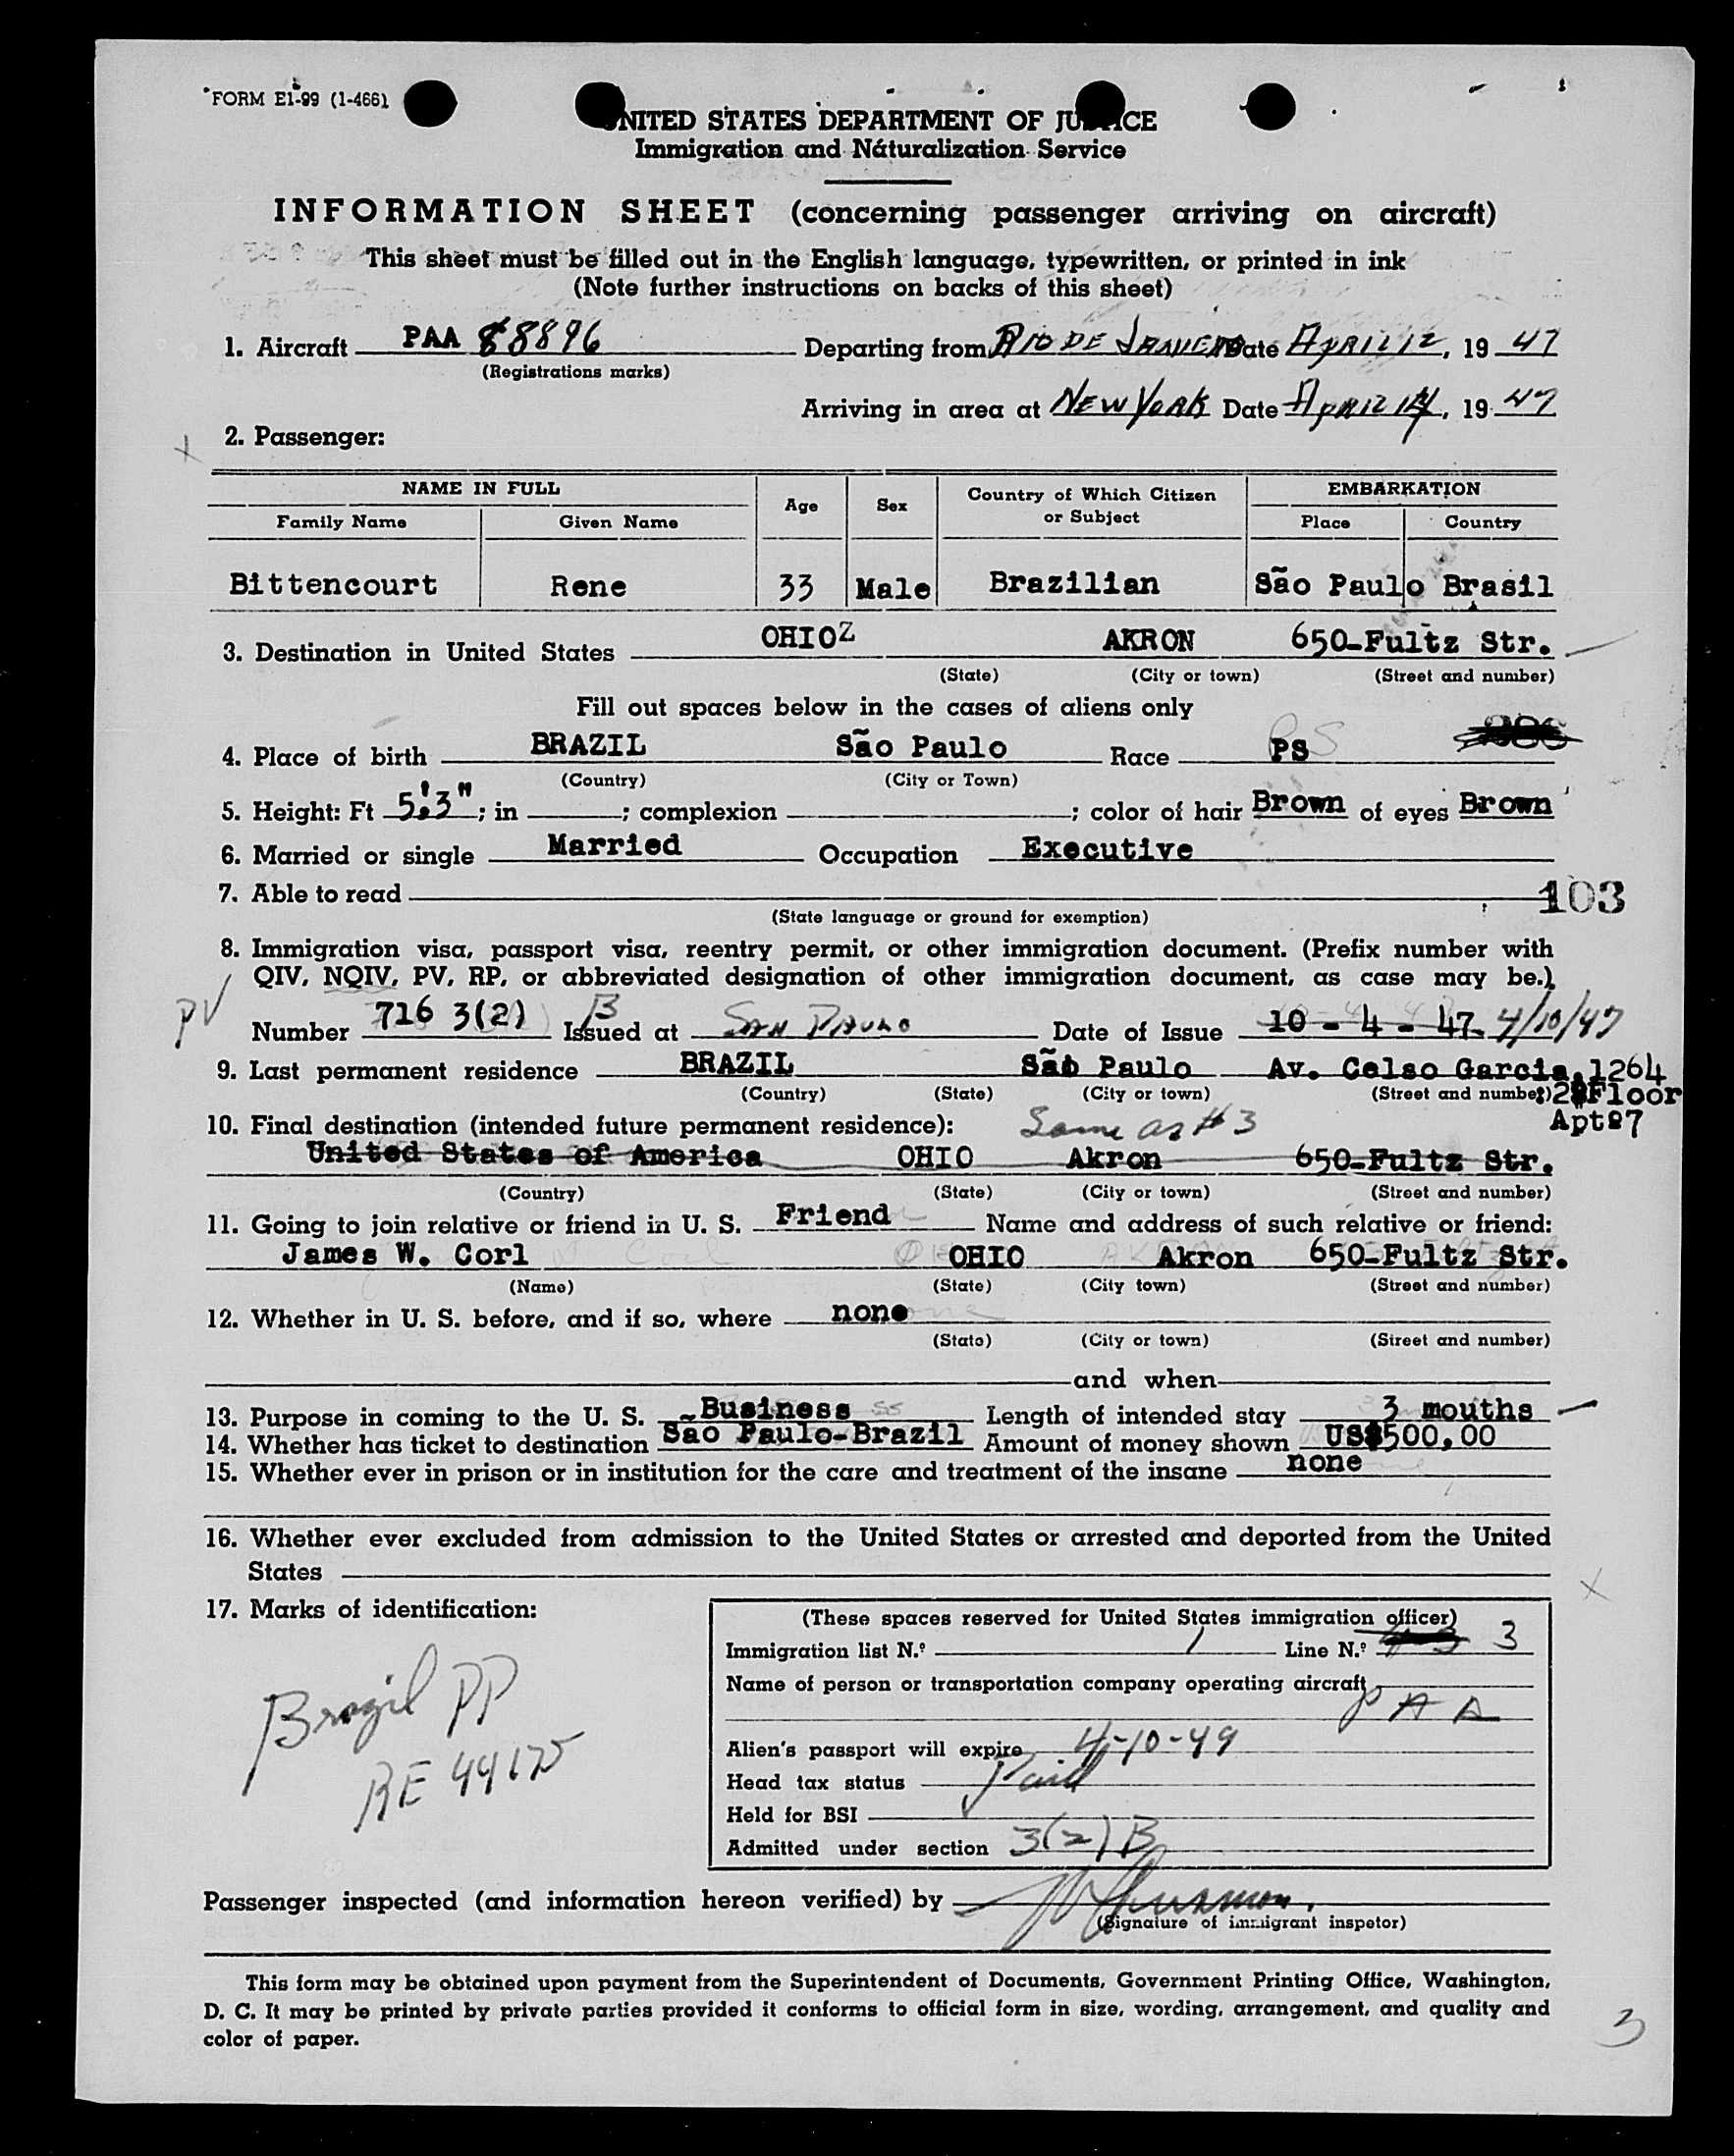 FORM E1-99 (1-466)
UNITED STATES DEPARTMENT OF JUSTICE
Immigration and Naturalization Service
INFORMATION SHEET (concerning passenger arriving on aircraft)
This sheet must be filled out in the English language, typewritten, or printed in ink
(Note further instructions on backs of this sheet)
1. Aircraft PAA 88896 Departing from RIO DE JANEIRO Date APRIL 12, 19 47
(Registrations marks)
Arriving in area at NEW YORK Date APRIL 14, 19 47
2. Passenger:
NAME IN FULL Age Sex Country of Which Citizen or Subject EMBARKATION
Family Name Given Name Place Country
Bittencourt Rene 33 Male Brazilian São Paulo Brasil
3. Destination in United States OHIOZ AKRON 650-Fultz Str.
(State) (City or town) (Street and number)
Fill out spaces below in the cases of aliens only
4. Place of birth BRAZIL São Paulo Race PS
(Country) (City or Town)
5. Height: Ft 5:3"; in ; complexion ; color of hair Brown of eyes Brown
6. Married or single Married Occupation Executive
7. Able to read 103
(State language or ground for exemption)
8. Immigration visa, passport visa, reentry permit, or other immigration document. (Prefix number with
QIV, NQIV, PV, RP, or abbreviated designation of other immigration document, as case may be.)
PV Number 716 3(2) B Issued at SAN PAULO Date of Issue 10 - 4 - 47 4/10/47
9. Last permanent residence BRAZIL São Paulo Av. Celso Garcia, 1264
(Country) (State) (City or town) (Street and number) 2ºFloor
Apt87
10. Final destination (intended future permanent residence): Same as #3
United States of America OHIO Akron 650-Fultz Str.
(Country) (State) (City or town) (Street and number)
11. Going to join relative or friend in U. S. Friend Name and address of such relative or friend:
James W. Corl OHIO Akron 650-Fultz Str.
(Name) (State) (City town) (Street and number)
12. Whether in U. S. before, and if so, where none
(State) (City or town) (Street and number)
and when
13. Purpose in coming to the U. S. Business Length of intended stay 3 mouths
14. Whether has ticket to destination São Paulo-Brazil Amount of money shown US$500,00
15. Whether ever in prison or in institution for the care and treatment of the insane none
16. Whether ever excluded from admission to the United States or arrested and deported from the United
States
17. Marks of identification:
Brazil PP
RE 44175
(These spaces reserved for United States immigration officer)
Immigration list N.º 1 Line N.º 3
Name of person or transportation company operating aircraft
PAA
Alien's passport will expire 4-10-49
Head tax status Paid
Held for BSI
Admitted under section 3(2) B
Passenger inspected (and information hereon verified) by
(Signature of immigrant inspetor)
This form may be obtained upon payment from the Superintendent of Documents, Government Printing Office, Washington,
D. C. It may be printed by private parties provided it conforms to official form in size, wording, arrangement, and quality and
color of paper.
3